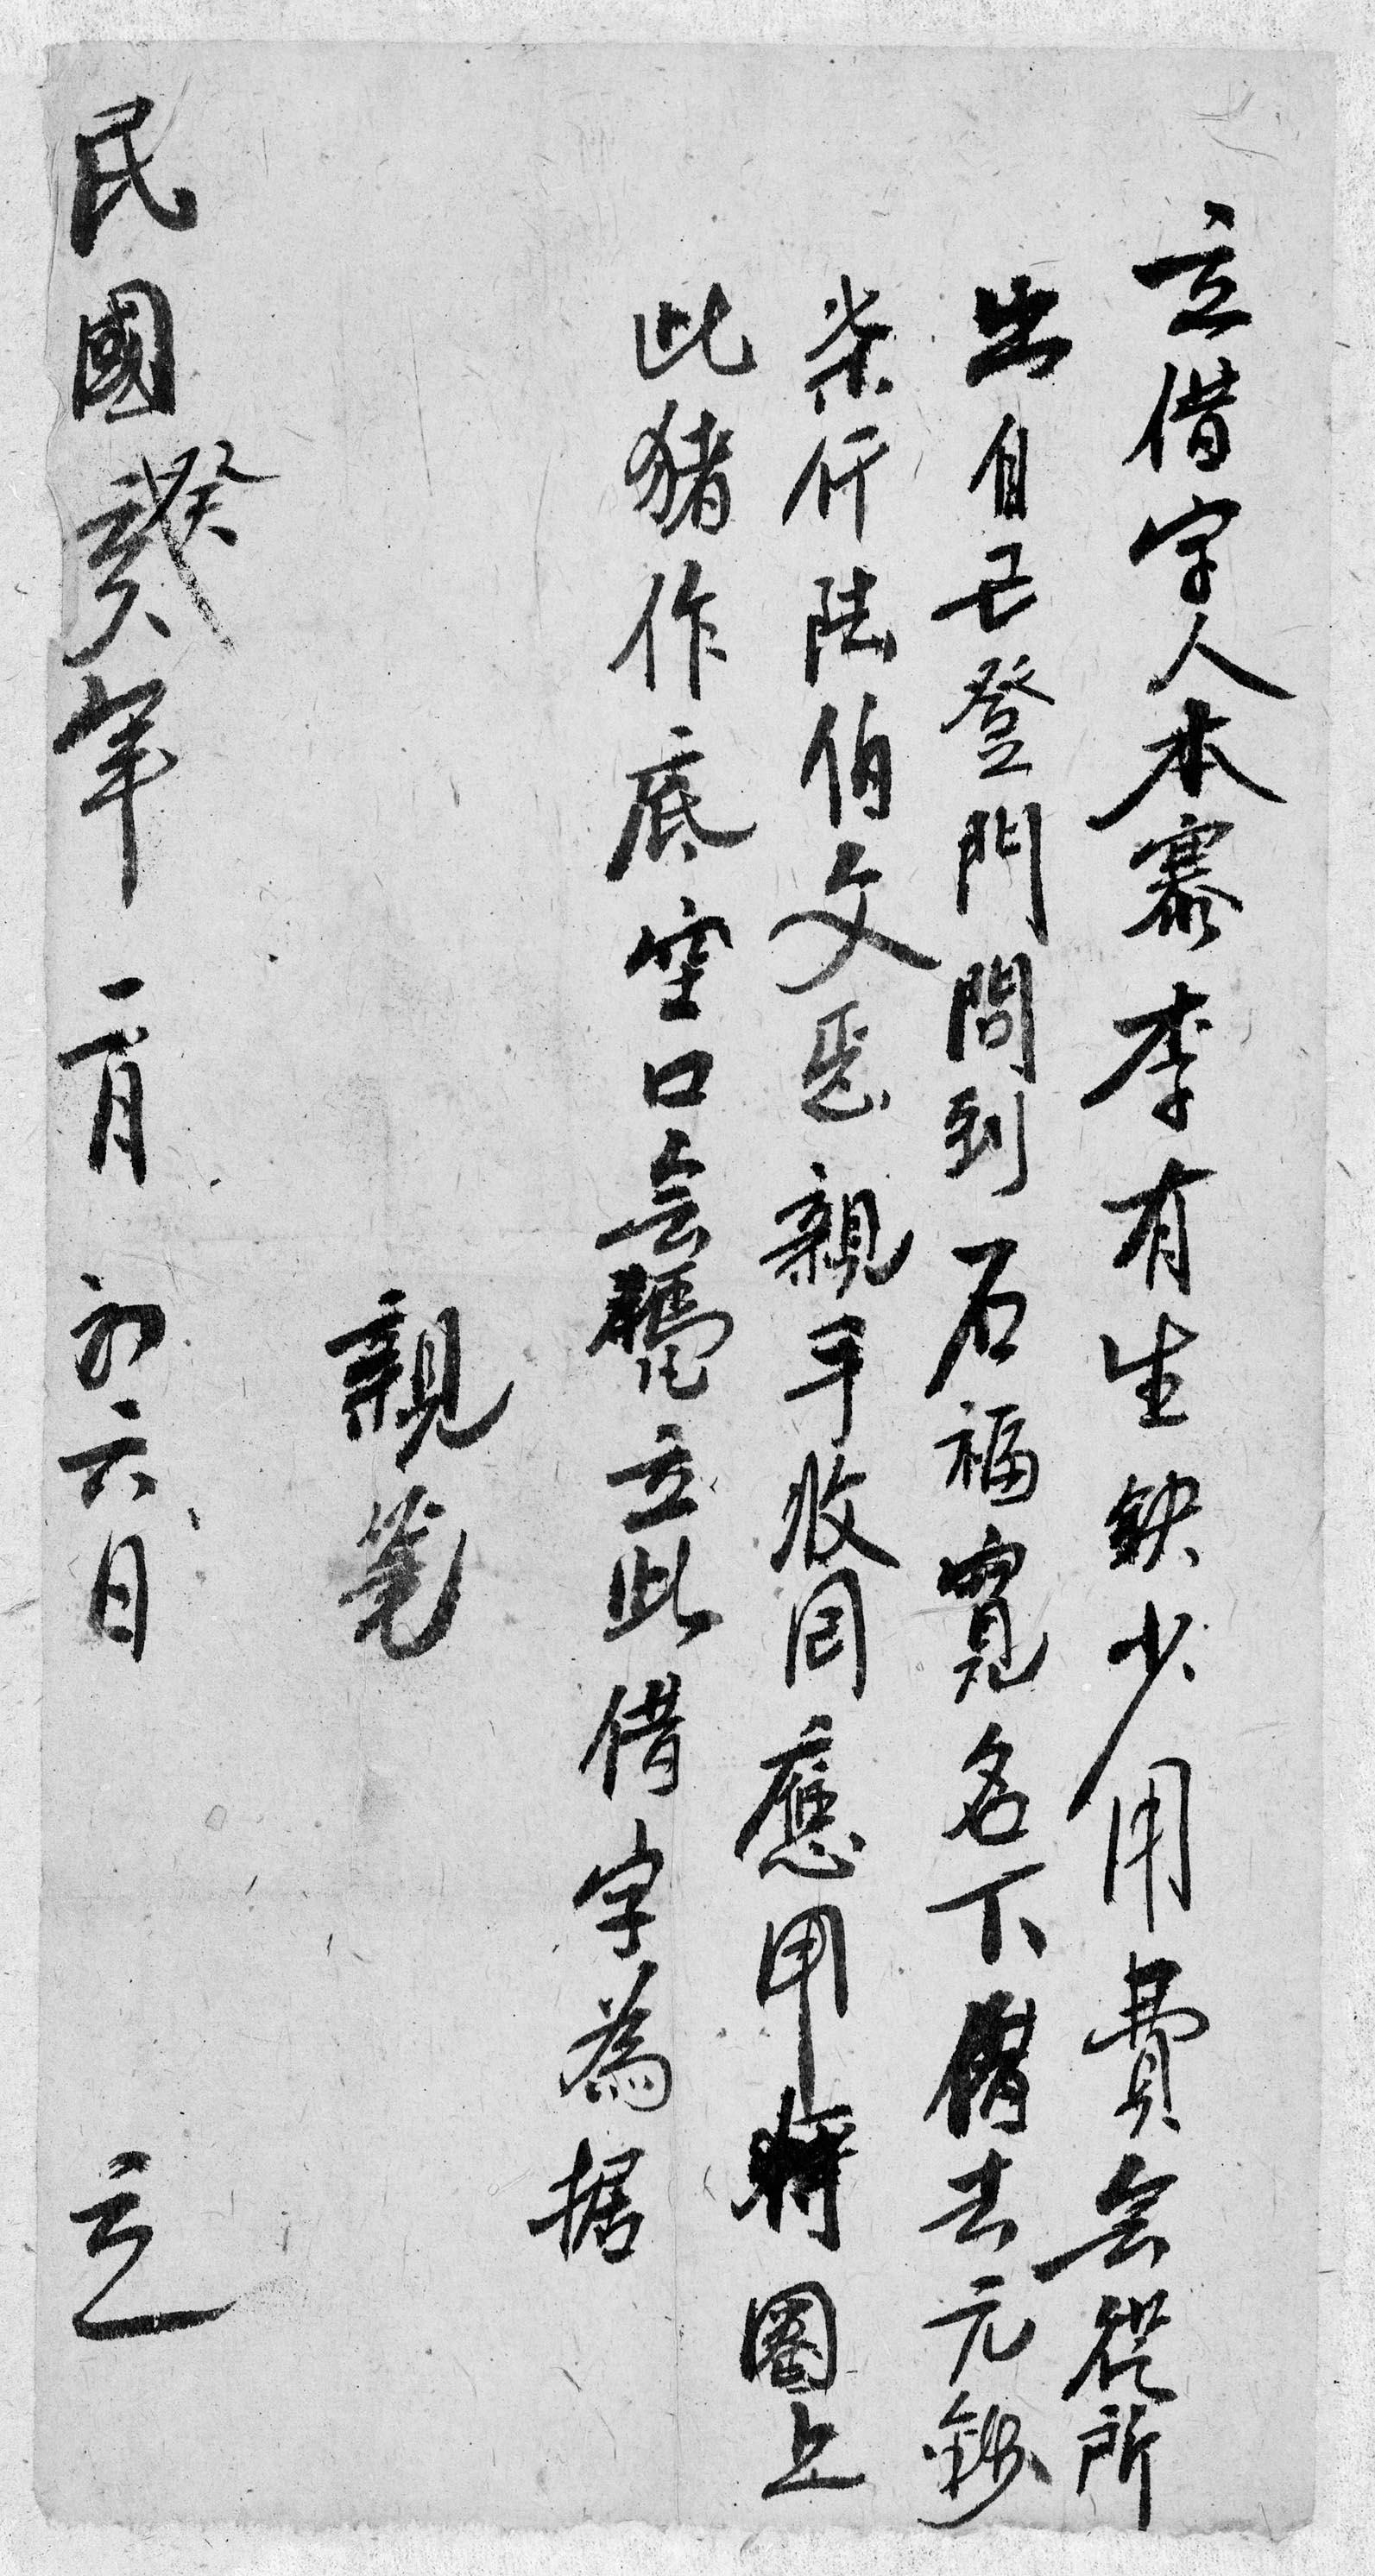 立借字人本寨李有生缺少用費无從所
出自己登門問到石福寬名下借去元錢
柒仟陆伯文恁親手收回應用將圈上
此猪作底空口无憑立此借字為據
親筆
民國癸亥年二月初六日 立